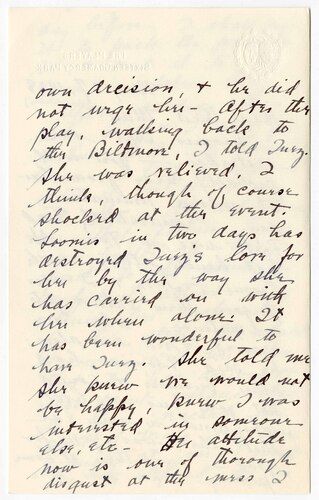 own decision, & he did
not urge her - After the
play, walking back to
the Biltmore, I told Suzy.
She was relieved, I
think, though of course
shocked at the event.
Loomis in two days has
destroyed Suzy's love for
her by the way she
has carried on with
her when alone. It
has been wonderful to
have Suzy. She told me
she knew we would not
be happy, knew I was
interested in someone
else, etc - Her attitude
now is one of thorough
disgust at the mess I